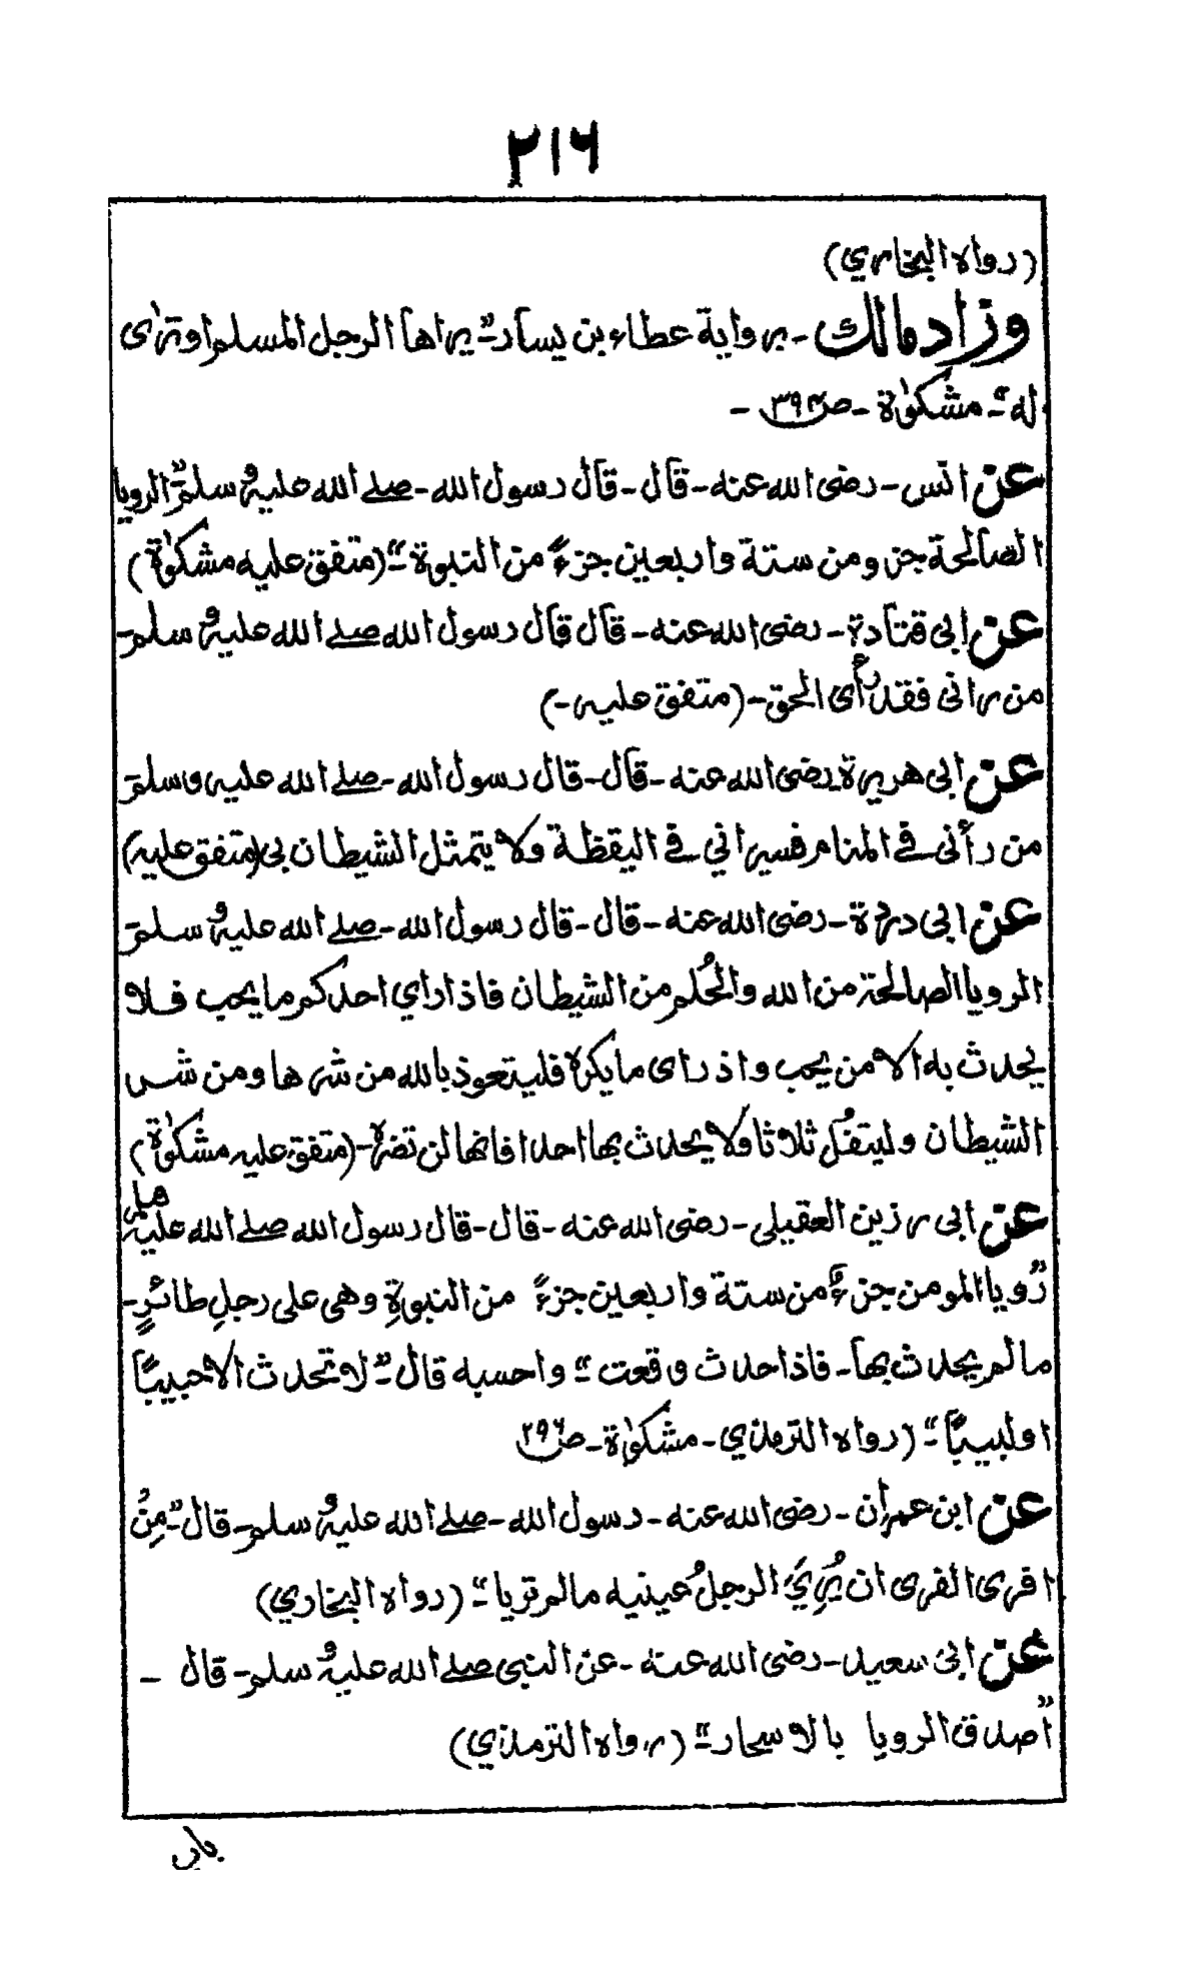 ۲۱۶
(رواہ البخاري)
وزاد مالک ـ برواية عطاء بن يسار ـ" يراها الرجل المسلم او ترٰی
له" ـ مشکوٰة ـ ص۳۹۴ ـ
عن انس ـ رضی الله عنه ـ قال ـ قال رسول الله ـ صلے الله عليه و سلم " الرويا
الصالحة جزء ومن ستة واربعين جزءً من النبوة ـ" (متفق عليه مشکوٰة)
عن ابی قتادة ـ رضی الله عنه ـ قال قال رسول الله صلے الله عليه و سلم ـ
من رانی فقد رأی الحق ـ (متفق عليه ـ)
عن ابی هريرة رضی الله عنه ـ قال ـ قال رسول الله ـ صلے الله عليه وسلم
من رأنی فے المنام فسيراني فے اليقظة ولا يتمثل الشيطان بی (متفق عليه)
عن ابی دردة ـ رضی الله عنه ـ قال ـ قال رسول الله ـ صلے الله عليه و سلم
الرويا الصالحة من الله والحُلم من الشيطان فاذا راي احدکم ما يحب فلا
يحدث به الا من يحب واذ رای ما يکرہ فليتعوذ بالله من شرها ومن شر
الشيطان وليتفُل ثلاثا ولا يحدث بها احدا فانها لن تضرہ ـ (متفق عليه مشکوٰة)
عن ابی رزين العقيلی ـ رضی الله عنه ـ قال ـ قال رسول الله صلے الله عليه
رُويا المومن جزءٌ من ستة واربعين جزءً من النبوةِ وهی علی رجلِ طائرٍ ـ
ما لم يحدث بها ـ فاذا حدث وقعت" ـ واحسبه قال ـ" لا تحدث الا حبيبًا
او لبيبًا ـ" (رواہ الترمذي ـ مشکوٰة ـ ص۳۹۶
عن ابن عمران ـ رضی الله عنه ـ رسول الله ـ صلے الله عليه و سلم ـ قال ـ" مِنُ
افری الفری ان يُرِیَ الرجلُ عينيه ما لم تريا ـ" (رواہ البخاري)
عن ابی سعيد ـ رضی الله عنه ـ عن النبی صلے الله عليه و سلم ـ قال ـ
"اصدق الرويا بالاسحار ـ" (رواہ الترمذي)
باب